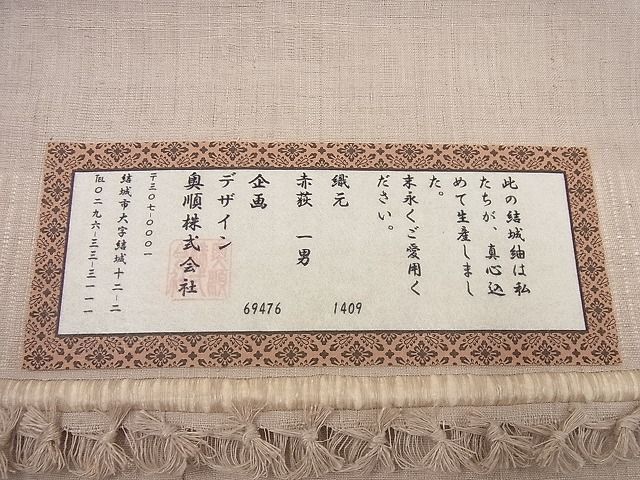 此の結城紬は私
たちが、真心込
めて生産しまし
た。
末永くご愛用く
ださい。
織元
1409
赤荻 一男
企画
69476
デザイン
奥順株式会社
〒三〇七-〇〇〇一
結城市大字結城十二-二
℡〇二九六-三三-三一一一